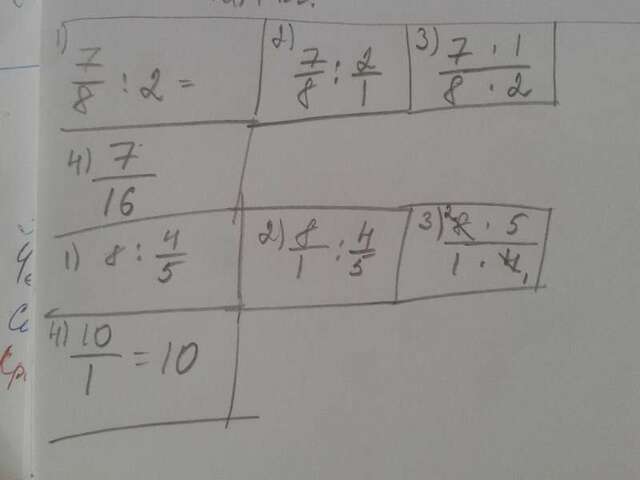 1) 7/8 : 2 =
2) 7/8 : 2/1
3) 7 · 1 / 8 · 2
4) 7/16
1) 8 : 4/5
2) 8/1 : 4/5
3) ²8 · 5 / 1 · 4₁
4) 10/1 = 10